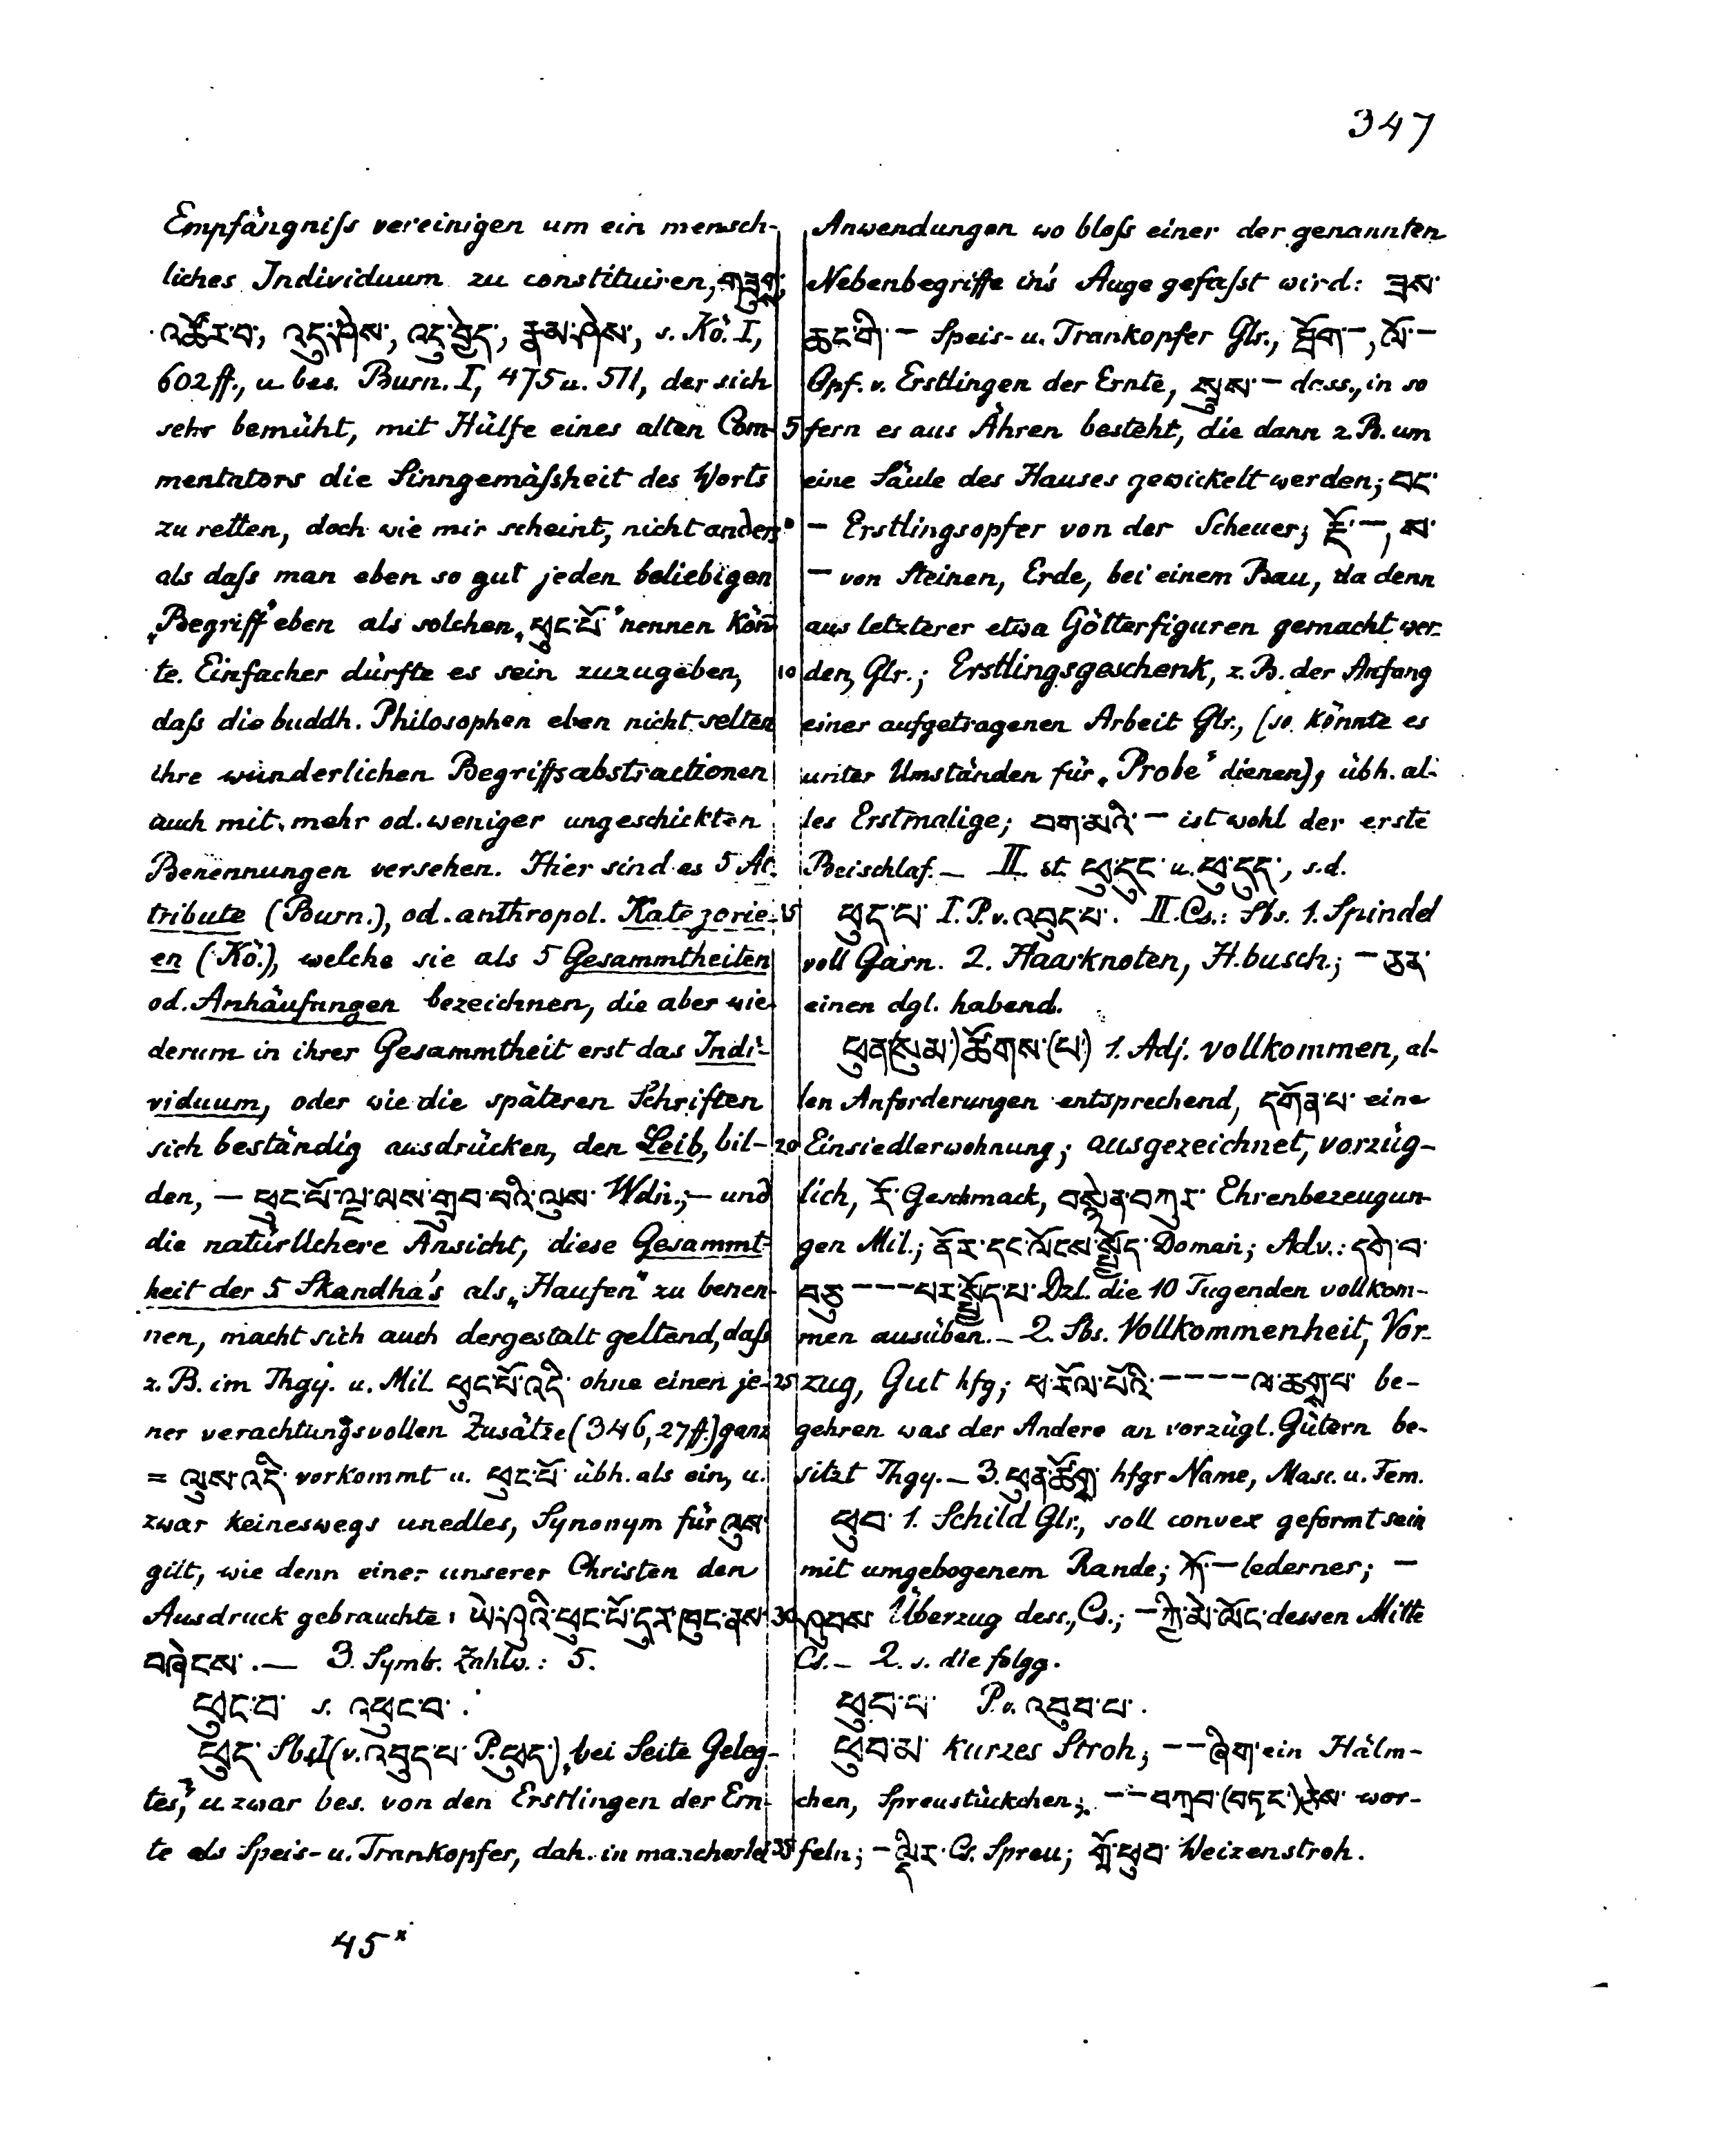 347
Empfängniſs vereinigen um ein mensch-
liches Individuum zu constituiren, གཟུགས,
འཚོར་བ, འདུ་ཤེས, འདུ་བྱེད, རྣམ་ཤེས, s. Kö. I,
602 ff., u. bes. Burn. I, 475 u. 511, der sich
sehr bemüht, mit Hülfe eines alten Com-
mentators die Sinngemäſsheit des Worts
zu retten, doch wie mir scheint, nicht anders
als daſs man eben so gut jeden beliebigen
„Begriff“ eben als solchen „ཕུང་པོ་“ nennen kön̄-
te. Einfacher dürfte es sein zuzugeben,
daſs die buddh. Philosophen eben nicht selten
ihre wunderlichen Begriffsabstractionen
auch mit mehr od. weniger ungeschickten
Benennungen versehen. Hier sind es 5 At-
tribute (Burn.), od. anthropol. Kategorie-
en (Kö.), welche sie als 5 Gesammtheiten
od. Anhäufungen bezeichnen, die aber wie-
derum in ihrer Gesammtheit erst das Indi-
viduum, oder wie die späteren Schriften
sich beständig ausdrücken, den Leib, bil-
den, — ཕུང་པོ་ལྔ་ལས་གྲུབ་པའི་ལུས་ Wdn.; — und
die natürlichere Ansicht, diese Gesammt-
heit der 5 Skandha's als „Haufen“ zu benen-
nen, macht sich auch dergestalt geltend, daſs
z. B. im Thgy. u. Mil. ཕུང་པོ་འདི་ ohne einen je-
ner verachtungsvollen Zusätze (346, 27 ff.) ganz
= ལུས་འདི་ vorkommt u. ཕུང་པོ་ übh. als ein, u.
zwar keineswegs unedles, Synonym für ལུས་
gilt, wie denn einer unserer Christen den
Ausdruck gebrauchte: ཡེ་ཤུའི་ཕུང་པོ་དུར་ཁུང་ནས་
བཞེངས་. — 3. Symb. Zahlw.: 5.
ཕུང་བ་ s. འཕུང་བ་.
ཕུད་ Sbst. I (v. འབུད་པ་ P. ཕུད་) „bei Seite Geleg-
tes“, u. zwar bes. von den Erstlingen der Ern-
te als Speis- u. Trankopfer, dah. in mancherlei
45*
Anwendungen wo bloſs einer der genannten
Nebenbegriffe in's Auge gefaſst wird: ཟས་
ཆང་གི་ — Speis- u. Trankopfer Glr., སྲོག་—, ལོ་—
5 Opf. v. Erstlingen der Ernte, སྙུས་ — dass., in so
fern es aus Ähren besteht, die dann z. B. um
eine Säule des Hauses gewickelt werden; བང་
— Erstlingsopfer von der Scheuer; རྡོ་—, ས་
— von Steinen, Erde, bei einem Bau, da denn
aus letzterer etwa Götterfiguren gemacht wer-
10 den, Glr.; Erstlingsgeschenk, z. B. der Anfang
einer aufgetragenen Arbeit Glr., (so könnte es
unter Umständen für „Probe“ dienen), übh. al-
les Erstmalige; བག་མའི་ — ist wohl der erste
Beischlaf. — II. st. ཕུ་དུང་ u. ཕུ་དུད་, s. d.
15 ཕུད་པ་ I. P. v. འབུད་པ་. II. Cs.: Sbs. 1. Spindel
voll Garn. 2. Haarknoten, H.busch.; — ཅན་
einen dgl. habend.
ཕུན་(སུམ་)ཚོགས་(པ་) 1. Adj. vollkommen, al-
len Anforderungen entsprechend, དགོན་པ་ eine
20 Einsiedlerwohnung; ausgezeichnet, vorzüg-
lich, རོ་ Geschmack, བསྙེན་བཀུར་ Ehrenbezeugun-
gen Mil.; ནོར་དང་ལོངས་སྤྱོད་ Domań; Adv.: དགེ་བ་
བཅུ་ — — — པར་སྤྱོད་པ་ Dzl. die 10 Tugenden vollkom-
men ausüben. — 2. Sbs. Vollkommenheit, Vor-
25 zug, Gut hfg; ཕ་རོལ་པོའི་ — — — — ལ་ཆགས་པ་ be-
gehren was der Andere an vorzügl. Gütern be-
sitzt Thgy. — 3. ཕུན་ཚོགས་ hfgr Name, Masc. u. Fem.
ཕུབ་ 1. Schild Glr., soll convex geformt sein
mit umgebogenem Rande; ཀོ་— lederner; —
30 ཤུབས་ Überzug dess., Cs.; — ཀྱི་མེ་ལོང་ dessen Mitte
Cs. — 2. s. die folgg.
ཕུབ་པ་ P. v. འབུབ་པ་.
ཕུབ་མ་ kurzes Stroh; — — ཞིག་ ein Hälm-
chen, Spreustückchen; — — བཀྲབ་(བདང་)ནས་ wor-
35 feln; — ལྡིར་ Cs. Spreu; གྲོ་ཕུབ་ Weizenstroh.